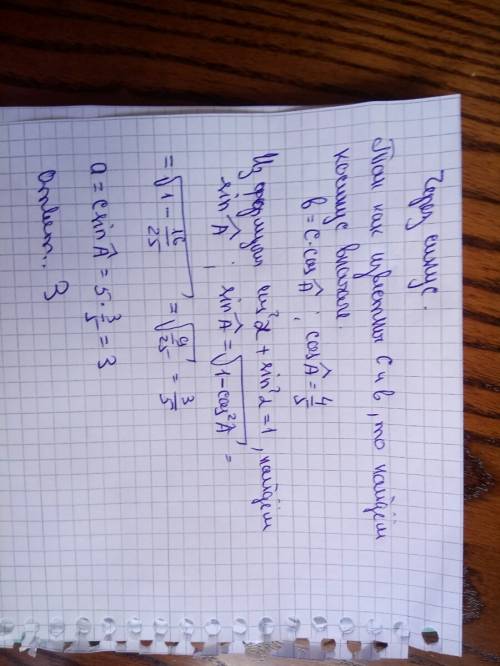 Через синус.
Так как известны c и в, то найдём
косинус вначале.
в = c·cos Â; cos Â = 4/5
Из формулы cos²α + sin²α = 1, найдём
sin Â; sin Â = √(1-cos²Â) =
= √(1 - 16/25) = √(9/25) = 3/5
a = c sin Â = 5·3/5 = 3
Ответ: 3